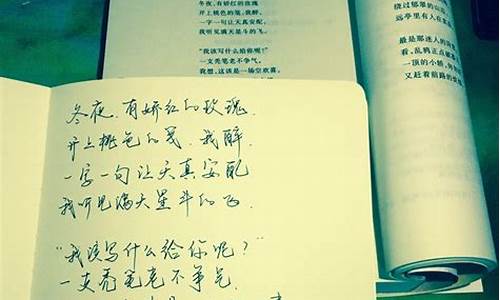 冬夜，有娇红的玫瑰
开上桃色的笺，我醉，
一字一句让天真安配，
我听见满天星斗的飞。
"我该写什么给你呢？"
一支秃笔老不争气。
我想，这该是一场空欢喜。
绕过郁翠的山
远亭里有人在
最是那迷人的
看，乱鸦正点破
一顶的小轿，
又赶着前路的
冬夜，有娇红的玫瑰
开上桃色的笺，我醉
一字一句让天真安配
我听见满天星斗的飞
"我该写什么给你呢？"
一支秃笔老不争气